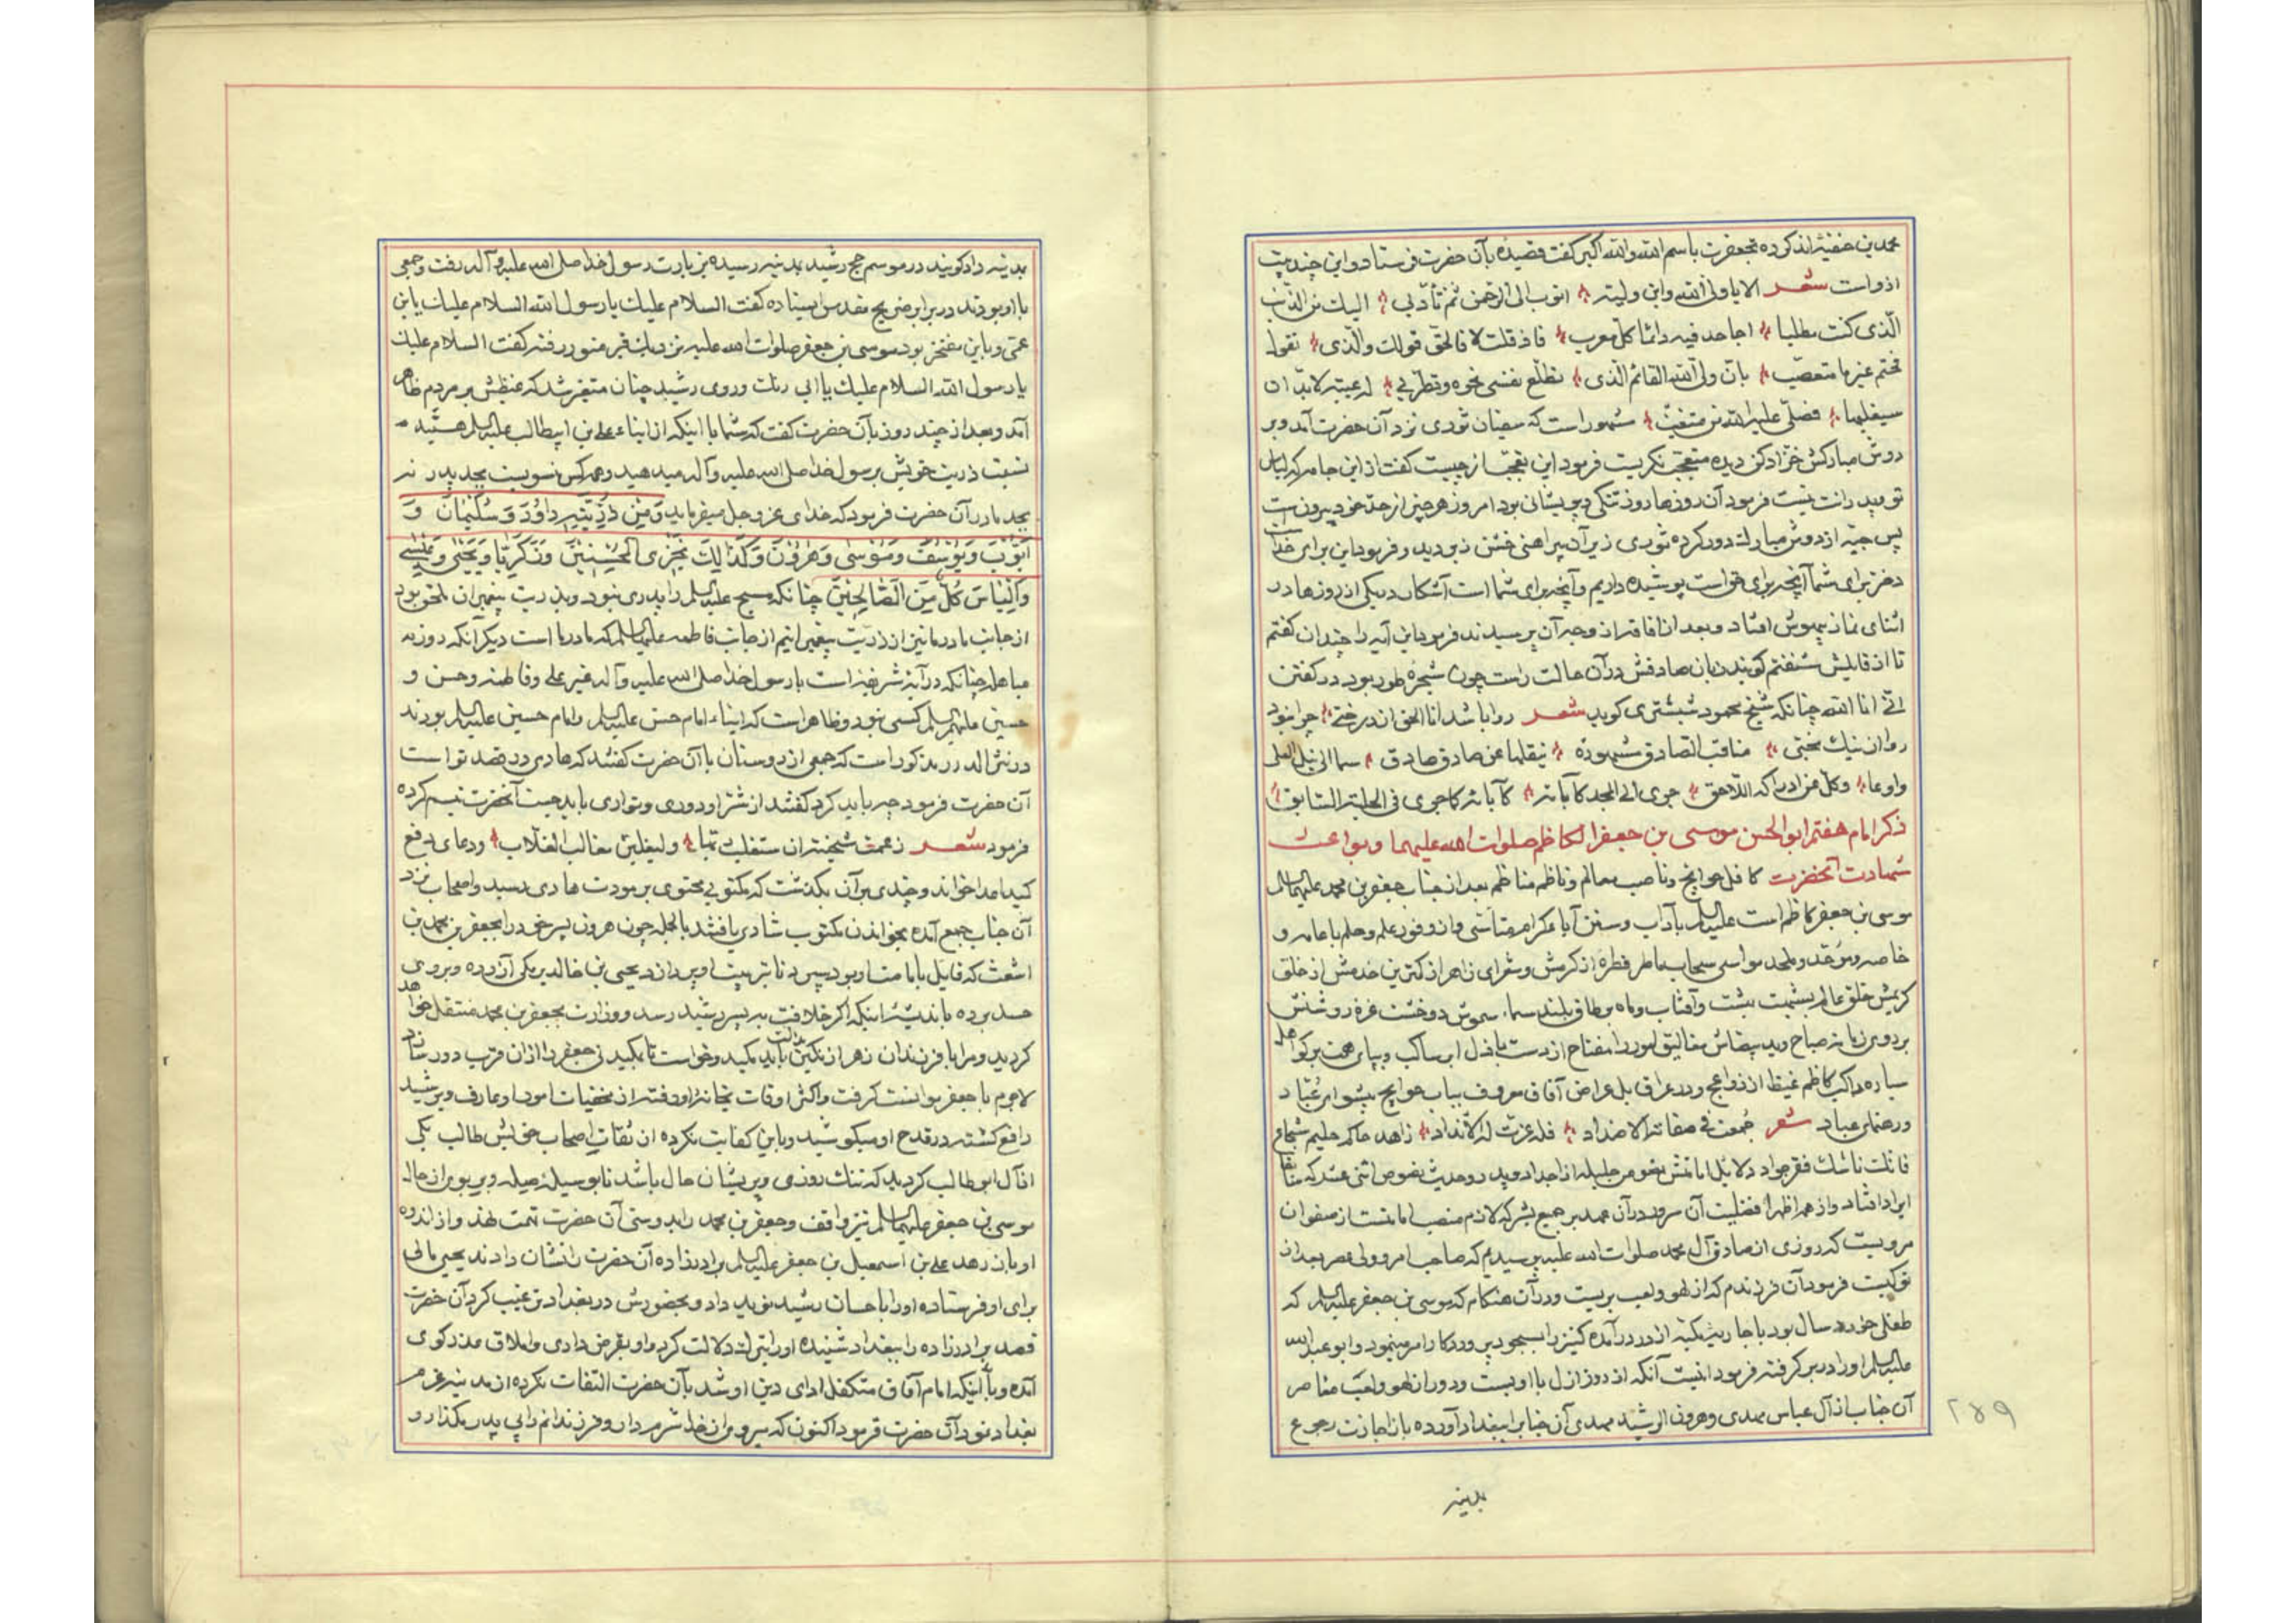 محمد بن حنفیه اند کرده بجعفرت باسم الله والله اکبر گفت قصیده بآن حضرت فرستاد و این چند بیت
ازو است شعر الا یا ولی الله وابن ولیه اتوب الی الرحمن ثم تأدبی الیک من الذنب
الذی کنت مطلبا اجاهد فیه دائما کل معرب فاذ قلت لا فالحق قولک والذی تقول
تحتم غیر ما متعصب بان ولی الله القائم الذی تطلع نفسی نحوه وتطربی له غیبة لا بد ان
سیغیبها فصلی علیه الله من متغیب مشهور است که سفیان ثوری نزد آن حضرت آمد و بر
دوش مبارکش خز ادکن دیده متعجب نگریست فرمود این تعجب از چیست گفت از این جامه که لباس
تو پدرانت نیست فرمود آن روزها روز تنگی و پریشانی بود امروز هر چیز از حد خود بیرون است
پس جبه از دوش مبارک دور کرده ثوری زیر آن پیراهنی خشن دید و فرمود این برای خداست
و خز برای شما آنچه برای خداست پوشیده داریم و آنچه برای شما است آشکار و یکی از روزها در
اثنای نماز بیهوش افتاد و بعد از افاقت از وجه آن پرسیدند فرمود این آیه را چندان گفتم
تا از قایلش شنفتم گویند زبان صادقش در آن حالت راست چون شجره طور بود در گفتن
انی انا الله چنانکه شیخ محمود شبستری گوید شعر روا باشد انا الحق از درختی چرا نبود
روا از نیک بختی مناقب الصادق مشهوره ینقلها عن صادق صادق سما الی نیل العلی
وادعا وکل عن ادراکه اللاحق جری الی المجد کآبائه کآبائه کما جری فی الحلبة السابق
ذکر امام هفتم ابو الحسن موسی بن جعفر الکاظم صلوات الله علیهما و بواعث
شهادت آنحضرت کافل حوایج و ناصب معالم و ناظم مناظم بعد از جناب جعفر بن محمد علیهما السلام
موسی بن جعفر کاظم است علیه السلام بآداب و سنن آباء کرام متأسی و از وفور علم و حلم با عامه و
خاصه و موحد و ملحد مواسی سحاب ماطر قطره از کرمش و شعرای زاهر از کمترین خدمش از خلق
کریمش خلق عالم بشمیت بهشت و آفتاب و ماه بر طاق بلند سماء سموش دو خشت غره روشنش
بر روی زمانه صباح و ید بیضاش مغالیق امور را مفتاح از دست باذل ابر ساکب و بپای همت بر کواهل
سیاره راکب کاظم غیظ از نواعج و در عراق بل عراض آفاق معروف بباب حوایج پیشوای عُبّاد
و رهنمای عباد شعر جُمعت فی صفاته الاضداد فلهذا عزت له الانداد زاهد حاکم حلیم شجاع
فاتک ناسک فقیر جواد دلایل امامتش نصوص جلیله از اجداد و پدر و حدیث نصوص اثنی عشر که سابقا
ایراد افتاد و از همه اظهر افضلیت آن سرور در آن عهد بر جمیع بشر که لازم منصب امامتست از صفوان
مرویست که روزی از صادق آل محمد صلوات الله علیه پرسیدیم که صاحب امر و ولی عصر بعد از
تو کیست فرمود آن فرزندم که از لهو و لعب بریست و در آن هنگام که موسی بن جعفر علیه السلام که
طفلی خورد سال بود با جاریه مکیه از در درآمده کنیز را بسجود پروردگار امر مینمود و ابو عبد الله
علیه السلام او را در بر گرفته فرمود اینست آنکه از روز ازل با او بیست و دور از لهو و لعب معاصر
آن جناب از آل عباس مهدی و هرون الرشید مهدی آن جناب را ببغداد آورده باز اجازت رجوع
۲۵۹
بمدینه
بمدینه داد گویند در موسم حج رشید بمدینه رسیده بزیارت رسول خدا صلی الله علیه وآله رفت و جمعی
با او بودند در برابر ضریح مقدس ایستاده گفت السلام علیک یا رسول الله السلام علیک یا بن
عمی و باین مفتخر بود موسی بن جعفر صلوات الله علیه نزدیک قبر منور رفته گفت السلام علیک
یا رسول الله السلام علیک یا ابی رنگ و روی رشید چنان متغیر شد که غیظش بر مردم ظاهر
آمد و بعد از چند روز بآن حضرت گفت که شما با اینکه از ابناء علی بن ابیطالب علیه السلام هستید
نسبت ذریت خویش برسول خدا صلی الله علیه وآله میدهید و هر کس منسوبست بجد پدر نه
بجد مادر آن حضرت فرمود که خدای عز وجل میفرماید وَمِن ذُرِّیَّتِهِ دَاوُدَ وَسُلَیْمَانَ وَ
اَیُّوبَ وَیُوسُفَ وَمُوسی وَهرُونَ وَکَذَالِکَ نَجْزِی المُحْسِنِینَ وَزَکَرِیَّا وَیَحْیی وَعِیسی
وَاِلْیَاسَ کُلٌّ مِنَ الصَّالِحِینَ چنانکه مسیح علیه السلام را پدری نبود و بذریت پیغمبران ملحق بود
از جانب مادر ما نیز از ذریت پیغمبرانیم از جانب فاطمه علیها السلام که مادر ما است دیگر آنکه روز
مباهله چنانکه در آیه شریفه است با رسول خدا صلی الله علیه وآله غیر علی و فاطمه و حسن و
حسین علیهم السلام کسی نبود و ظاهر است که ابناء امام حسن علیه السلام و امام حسین علیه السلام بودند
در نثر الدرر مذکور است که جمعی از دوستان با آن حضرت گفتند که هادی در قصد تو است
آن حضرت فرمود چه باید کرد گفتند از شر او دوری و تواری باید جست آنحضرت تبسم کرده
فرمود شعر زعمت سخینة ان ستغلب ربها ولیغلبن مغالب الغلاب و دعای دفع
کید اعدا خواند و چندی بر آن نگذشت که مکتوبی محتوی بر موت هادی رسید و اصحاب نزد
آن جناب جمع آمده بخواندن مکتوب شادی یافتند بالجمله چون هرون پسر خود را بجعفر بن محمد بن
اشعث که قایل بامامت او بود سپرد تا بتربیت او پردازد یحیی بن خالد برمکی آزرده و بر وی
حسد برده باندیشه اینکه اگر خلافت به پسر رشید رسد وزارت بجعفر بن محمد منتقل خواهد
گردید و مرا با فرزندان زهر از نگین مذلت باید مکید و خواست تا بکیدی جعفر را از آن قرب دور سازد
لاجرم با جعفر موانست گرفت و اکثر اوقات بخانه او رفته از مخفیات امور او عارف و بر رشید
رافع گشته در قدح او میکوشید و باین کفایت نکرده از ثقات اصحاب خویش طالب یکی
از آل ابو طالب گردید که تنگ روزی و پریشان حال باشد تا بوسیله حیله وی بر احوال
موسی بن جعفر علیهما السلام نیز واقف و جعفر بن محمد را بدوستی آن حضرت تهمت نهد و از اندوه
او باز رهد علی بن اسمعیل بن جعفر علیه السلام برادرزاده آن حضرت را نشان دادند یحیی مالی
برای او فرستاده او را باحسان رشید نوید داد و بحضورش در بغداد ترغیب کرد آن حضرت
قصد برادرزاده را ببغداد شنیده او را بترک دلالت کرد و او بقرض داری و املاق معذرت گوی
آمده و با اینکه امام آفاق متکفل ادای دین او شد بآن حضرت التفات نکرده از مدینه عزم
بغداد نمود آن حضرت فرمود اکنون که میروی از خدا شرم دار و فرزندانم را بی پدر مگذار و